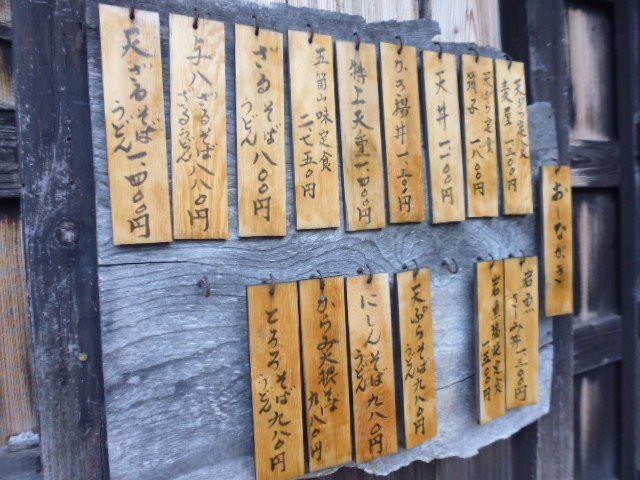 おしながき
天ぷら定食
天ぷら定食
一八〇〇円
天丼 一二〇〇円
かき揚丼 一、三〇〇円
特上天重 一四〇〇円
五箇山味定食
二七五〇円
ざるそば 八〇〇円
うどん
与八ざるそば 八八〇円
ざるうどん
天ざるそば 一、四〇〇円
うどん
岩魚
さしみ丼 一三〇〇円
岩魚塩焼定食
一五〇〇円
天ぷらそば 九八〇円
うどん
にしんそば 九八〇円
うどん
からみ大根そば
九八〇円
とろろそば 九八〇円
うどん